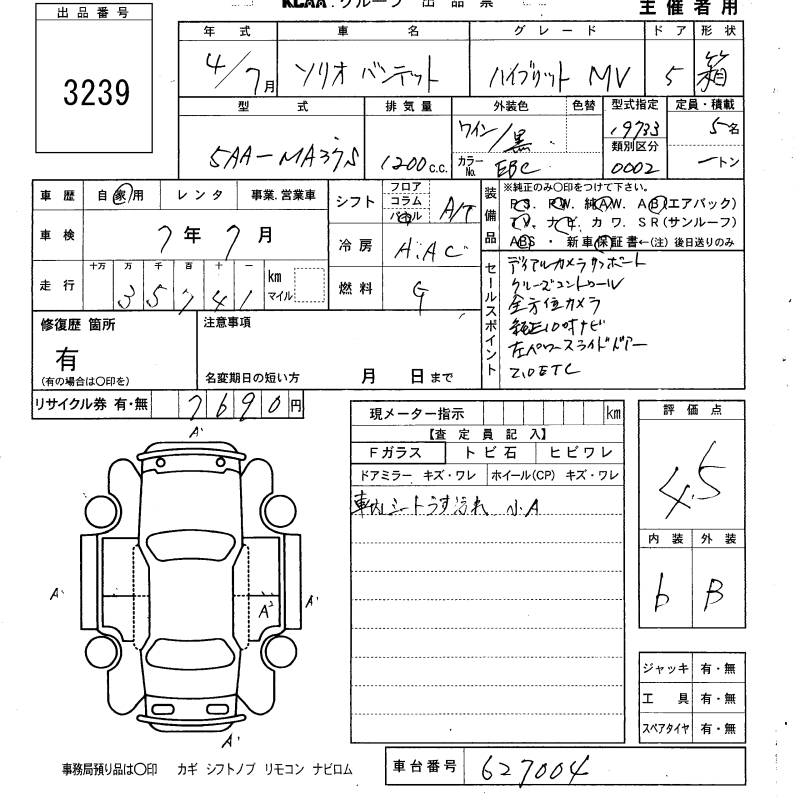 出品番号
KCAA.グループ 出品票
主催者用
3239
年式 車名 グレード ドア 形状
4/7月 ソリオ バンデット ハイブリット MV 5 箱
型式 排気量 外装色 色替 型式指定 定員・積載
5AA-MA37S 1200c.c. ワイン/黒 19733 5名
カラーNo. EBC 類別区分 0002 ートン
車歴 自家用 レンタ 事業.営業車
シフト フロア コラム パネル A/T
装備品 ※純正のみ〇印をつけて下さい。
P.S. P.W. 純A.W. A.B(エアバック)
T.V. ナビ. カワ. SR(サンルーフ)
ABS・新車保証書←(注)後日送りのみ
車検 7年7月
冷房 H.AC
走行 十万 万 千 百 十 一 km マイル
35741
燃料 G
セールスポイント
デイアルカメラサポート
クルーズコントロール
全方位カメラ
純正10吋ナビ
左パワースライドドアー
2.0ETC
修復歴 箇所 注意事項
有
(有の場合は〇印を)
名変期日の短い方 月 日まで
リサイクル券 有・無 7690円
現メーター指示 km
【査定員記入】
Fガラス トビ石 ヒビワレ
ドアミラー キズ・ワレ ホイール(CP) キズ・ワレ
車内シートうす汚れ 小A
評価点
4.5
内装 外装
b B
A'
A'
A2
A'
A'
ジャッキ 有・無
工具 有・無
スペアタイヤ 有・無
事務局預り品は〇印 カギ シフトノブ リモコン ナビロム
車台番号 627004